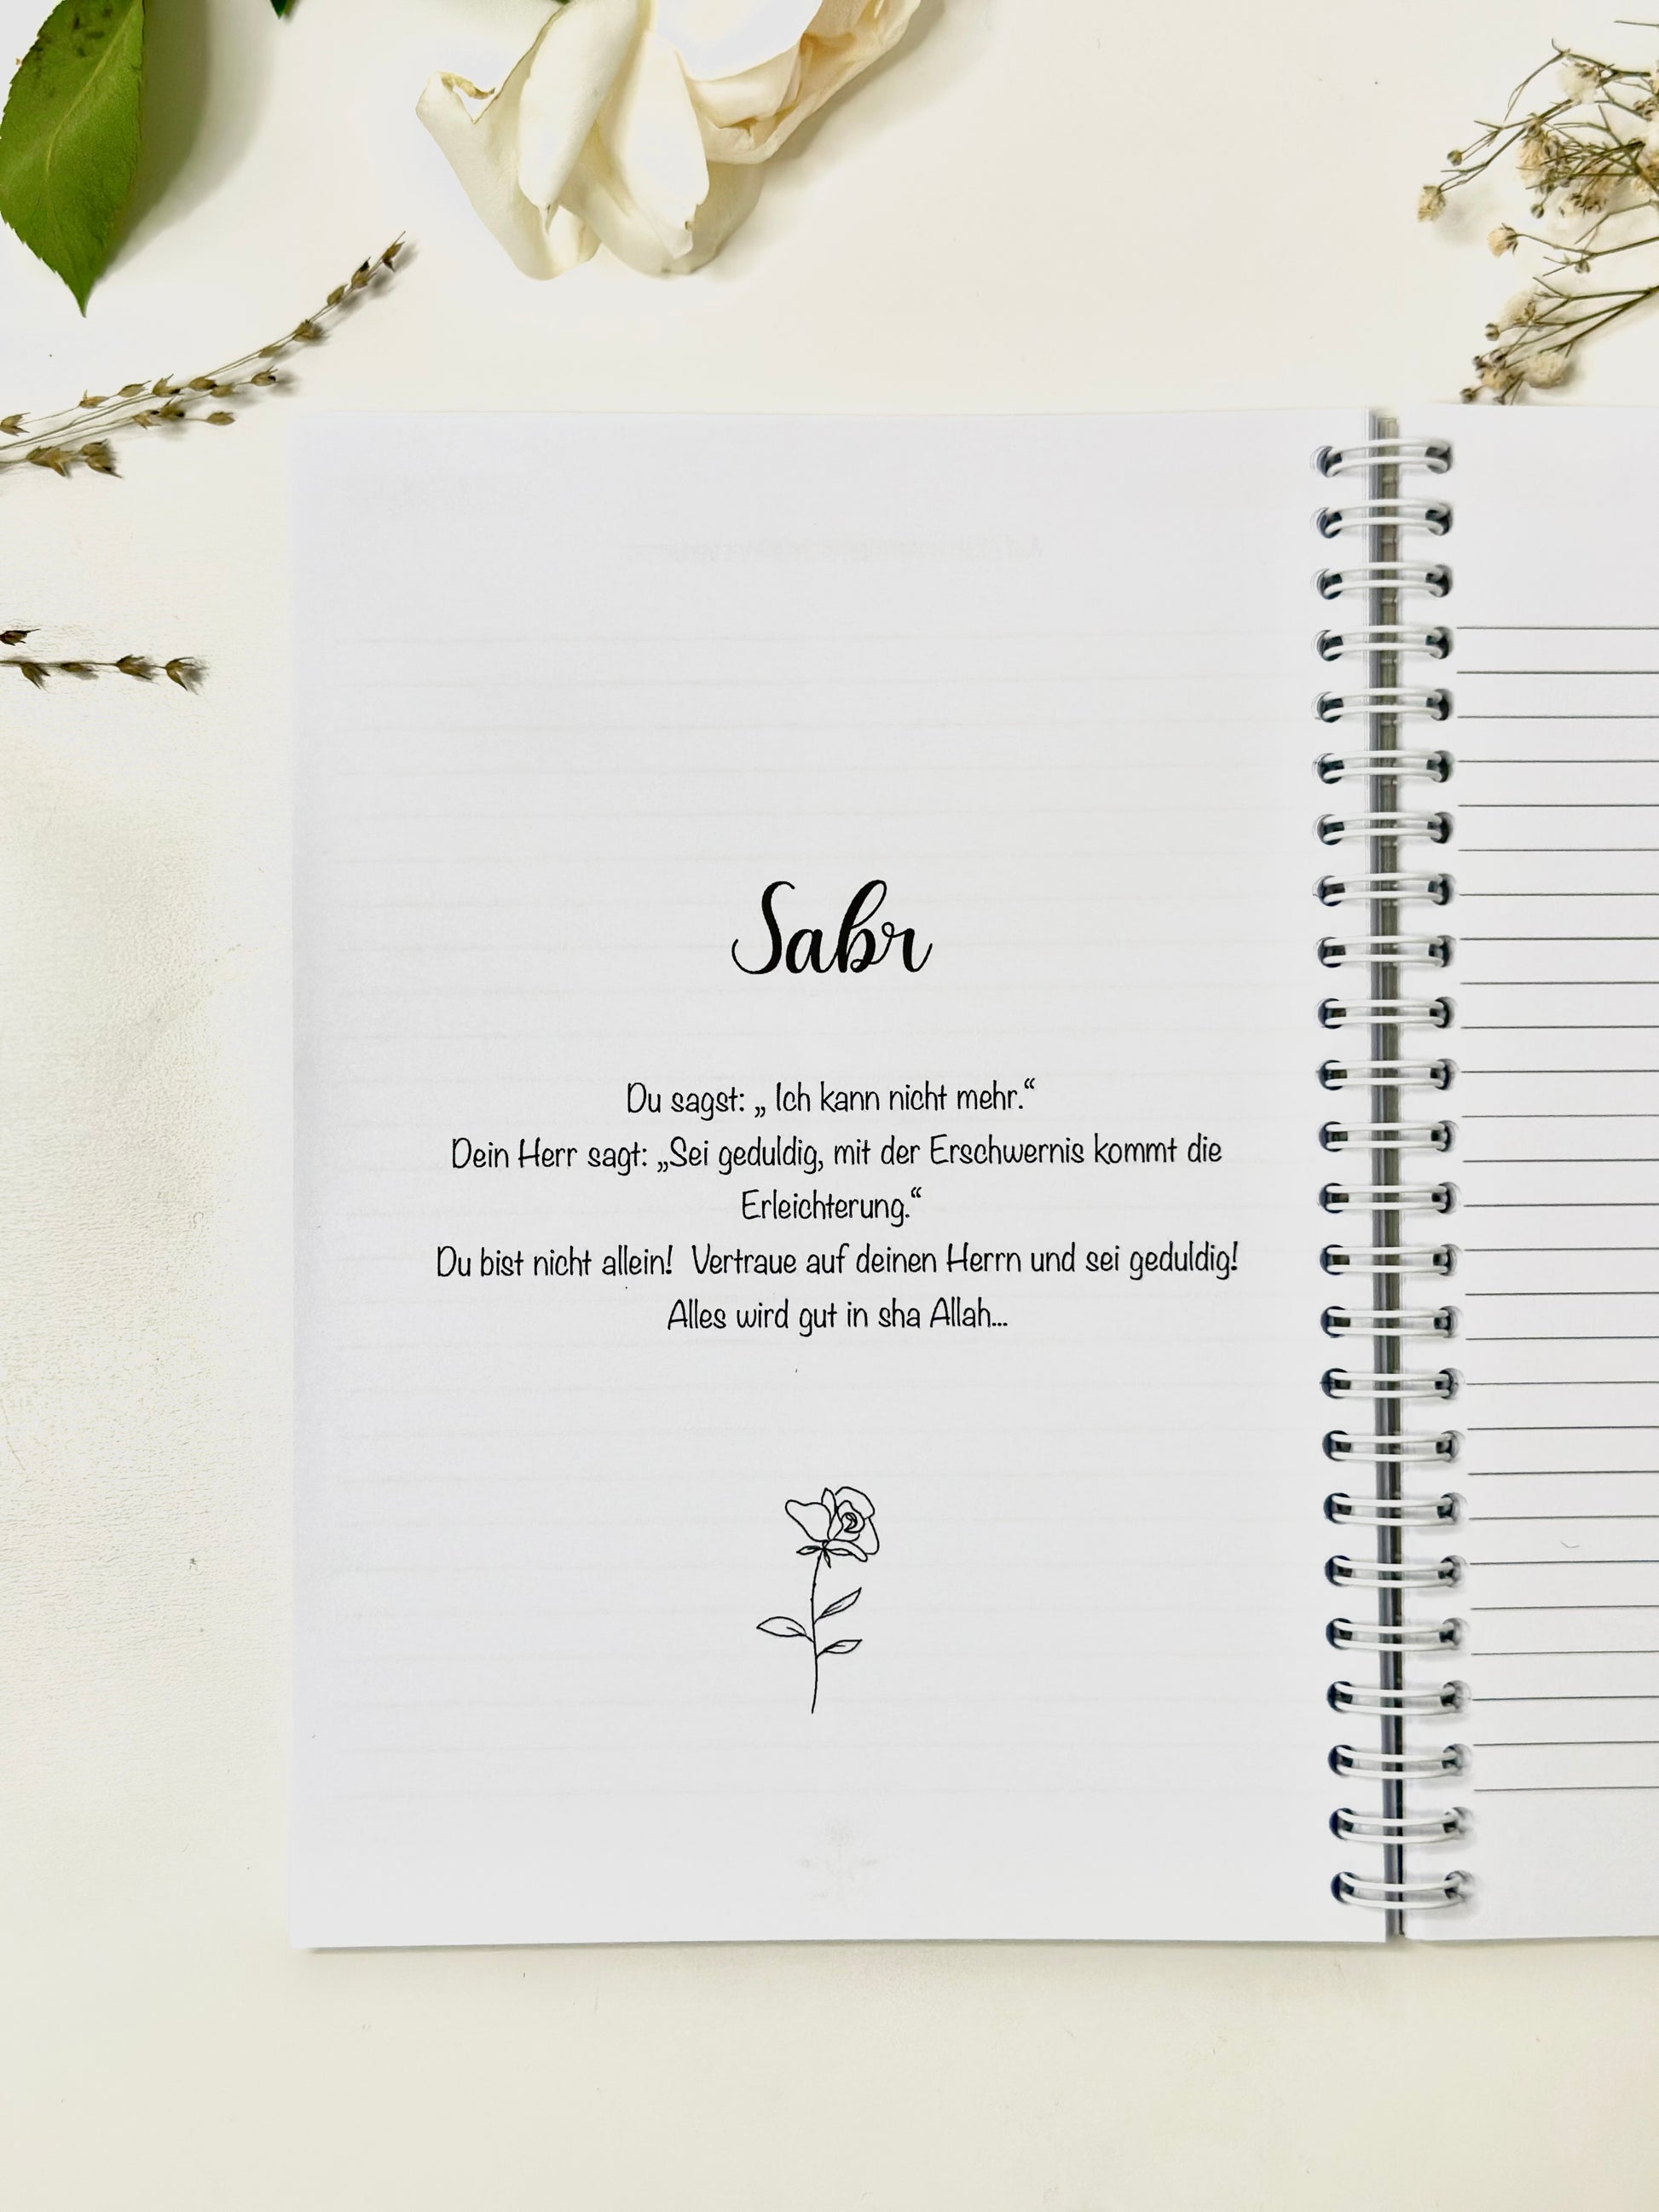 Sabr
Du sagst: „ Ich kann nicht mehr.“
Dein Herr sagt: „Sei geduldig, mit der Erschwernis kommt die
Erleichterung.“
Du bist nicht allein!  Vertraue auf deinen Herrn und sei geduldig!
Alles wird gut in sha Allah...